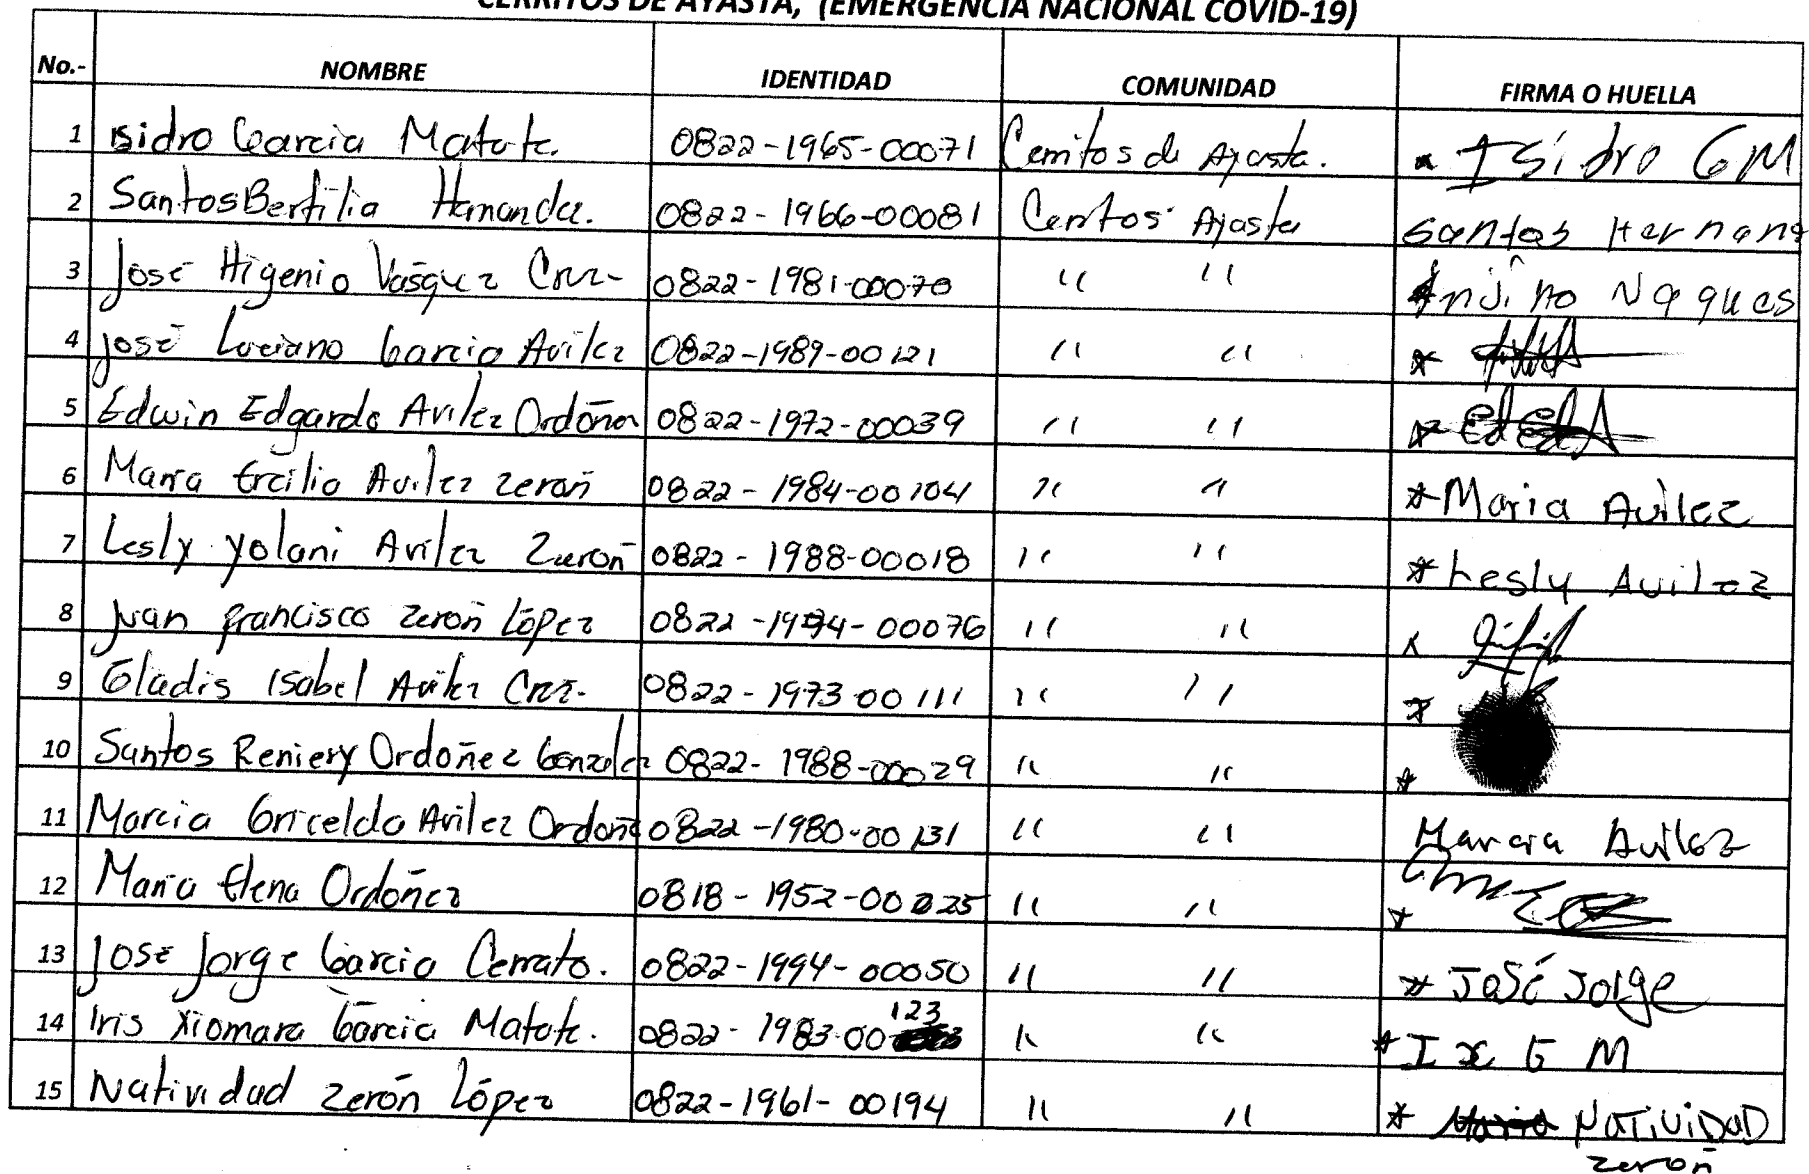 CERRITOS DE AYASTA, (EMERGENCIA NACIONAL COVID-19)
No.- NOMBRE IDENTIDAD COMUNIDAD FIRMA O HUELLA
1 Isidro Garcia Matute. 0822-1965-00071 Cerritos de Ayasta. Isidro G M
2 Santos Bertilia Hernandez. 0822-1966-00081 Cerritos Ayasta Santos Hernand
3 José Higenio Vasquez Cruz- 0822-1981-00070 " "
4 José Luciano Garcia Avilez 0822-1989-00121 " " *
5 Edwin Edgardo Avilez Ordoñez 0822-1972-00039 " " *
6 Maria Ercilia Avilez zeroñ 0822-1984-00104 " " *Maria Avilez
7 Lesly Yolani Avilez Zeroñ 0822-1988-00018 " " *Lesly Avilez
8 Juan francisco zeroñ López 0822-1974-00076 " " x
9 Gladis Isabel Avilez Cruz. 0822-1973-00111 " " *
10 Santos Reniery Ordoñez Gonzalez 0822-1988-00029 " " *
11 Marcia Griceldo Avilez Ordoñe 0822-1980-00131 " " Marcia Avilez
12 Maria Elena Ordoñez 0818-1952-00225 " " *
13 José Jorge Garcia Cerrato. 0822-1994-00050 " " * José Jorge
14 Iris Xiomara Garcia Matute. 0822-1983-00123 " " * I x G M
15 Natividad zerón López 0822-1961-00194 " " * NATIVIDAD
zeroñ